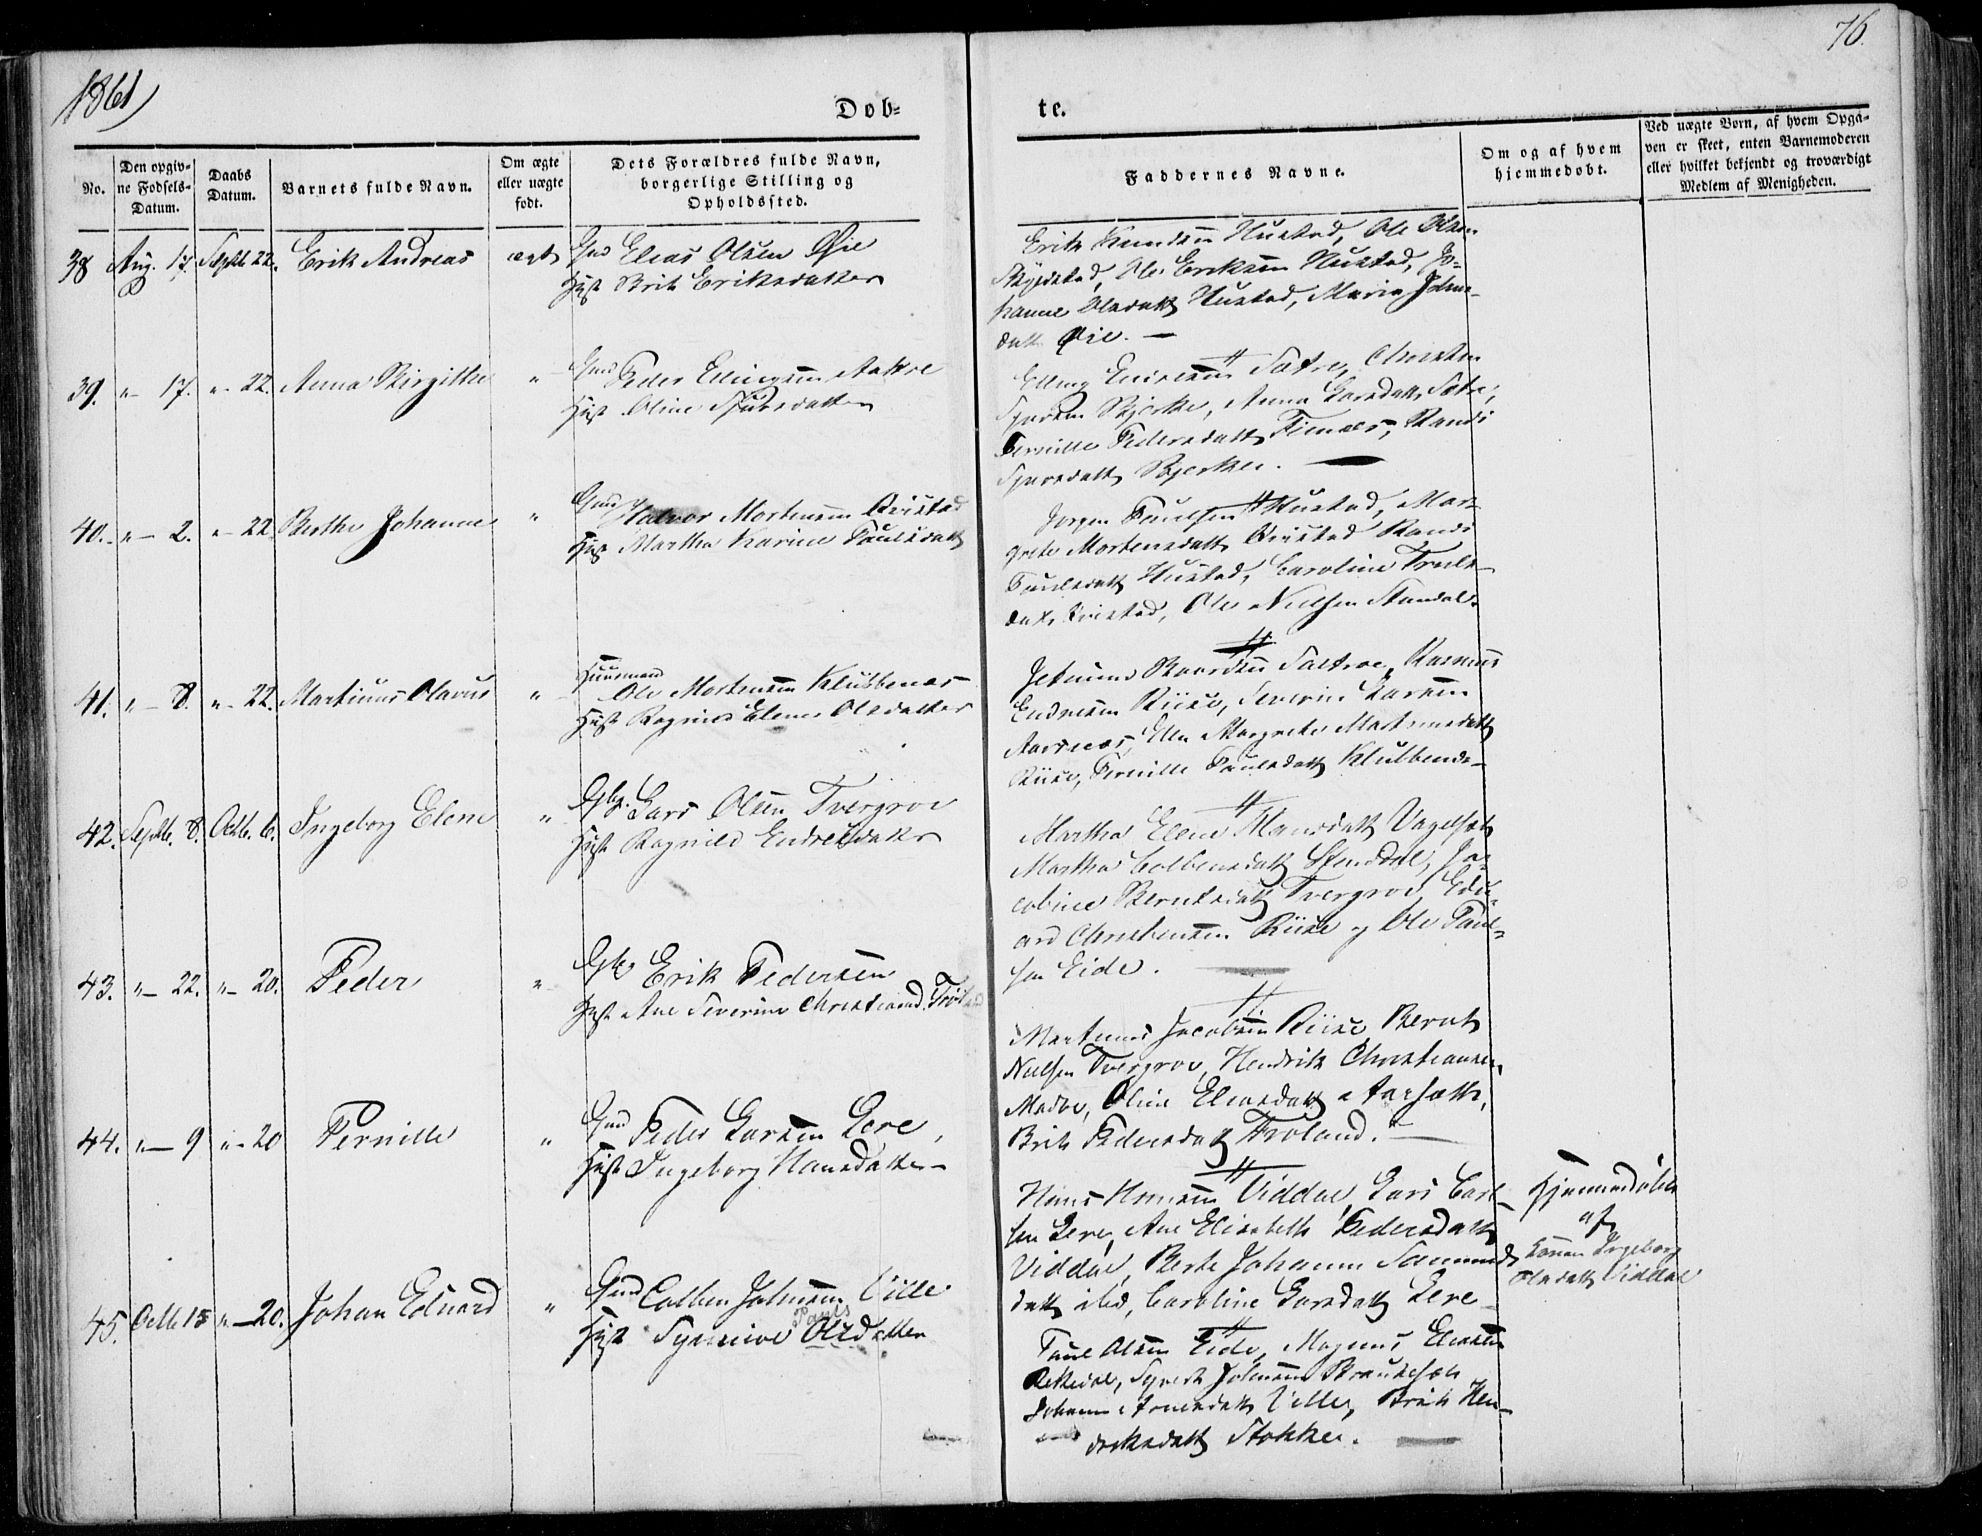 1861
76.
Døb-
te.
No.
Den opgiv-
ne Fødsels-
Datum.
Daabs
Datum.
Barnets fulde Navn.
Om ægte
eller uægte
født.
Dets Forældres fulde Navn,
borgerlige Stilling og
Opholdssted.
Faddernes Navne.
Om og af hvem
hjemmedøbt.
Ved uægte Børn, af hvem Opga-
ven er skeet, enten Barnemoderen
eller hvilket bekjendt og troværdigt
Medlem af Menigheden.
38 Aug. 17. Septb 22. Erik Andreas ægte Gmd Elias Olsen Øie
Hust Brit Eriksdatter
Erik Knudsen Hustad, Ole Olsen
Ole Eriksen Hustad, Jo-
hanne Olsdatt Hustad, Maria Johns-
datt Øie. —
39. " 17. " 22. Anna Birgitte " Gmd Peder Ellingsen Aakre
Hust Oline Sjursdatter
Elling Sætre, Christen
Sjursen Bjerke, Anna Larsdatt Sætre,
Pernille Pedersdatt Randi
Sjursdatt Bjerke. —
40. " 2. " 22 Berthe Johanne " Gmd Halvor Mortensen Qvistad
Hust Martha Karine Paulsdatt
Jørgen Paulsen Hustad, Mar-
grete Mortensdatt Qvistad Randi
Paulsdatt Hustad, Caroline
datt Qvistad, Ole Nielsen Standal.
41. " 8. " 22. Martinus Olavus " Huusmand
Ole Mortensen Klubbenes
Hust Ragnild Elene Olsdatter
Rasmus
Endresen Riise, Severin Larsen
Aarsnes, Elen Margrete Martinusdatt
Riise, Pernille Paulsdatt Klubbenes
42. Septb. 8. Octb. 6. Ingeborg Elene " Gbr. Lars Olsen Tvergrov
Hust Ragnild Endresdatter
Martha Elene Hansdatt
Martha Colbensdatt Standal, Ja-
cobine Berntsdatt Tvergrov, Edv-
ard Christensen Riise og Ole Paul-
sen Eide.
43. " 22. " 20. Peder " Gbr Erik Pedersen
Hust Ane Severine Christiansd.
Martinus Jacobsen Riise Bernt
Nielsen Tvergrov, Hendrik Christiansen
Oline Eliasdatt Aarsæth,
Brit Pedersdatt Troland. —
44. " 9 " 20 Pernille " Gmd Peder Larsen Lere,
Hust Ingeborg Hansdatter
Hans Hansen Viddal, Lars Carl-
sen Lere, Ane Elisabeth Pedersdatt
Viddal, Berte Johanne
datt ibid, Caroline Larsdatt Lere
Hjemmedøbt
af
Konen Ingeborg
Olsdatt Viddal
45. Octb 13 " 20. Johan Eduard " Gmd Colben Johnsen Ville
Pauls
Hust Synnøve Olsdatter
Paul Olsen Eide, Magnus Eliassen
Rekkedal, Syvert Johnsen
Johanne Arnesdatt Ville, Brit Hen-
driksdatt Stokke.